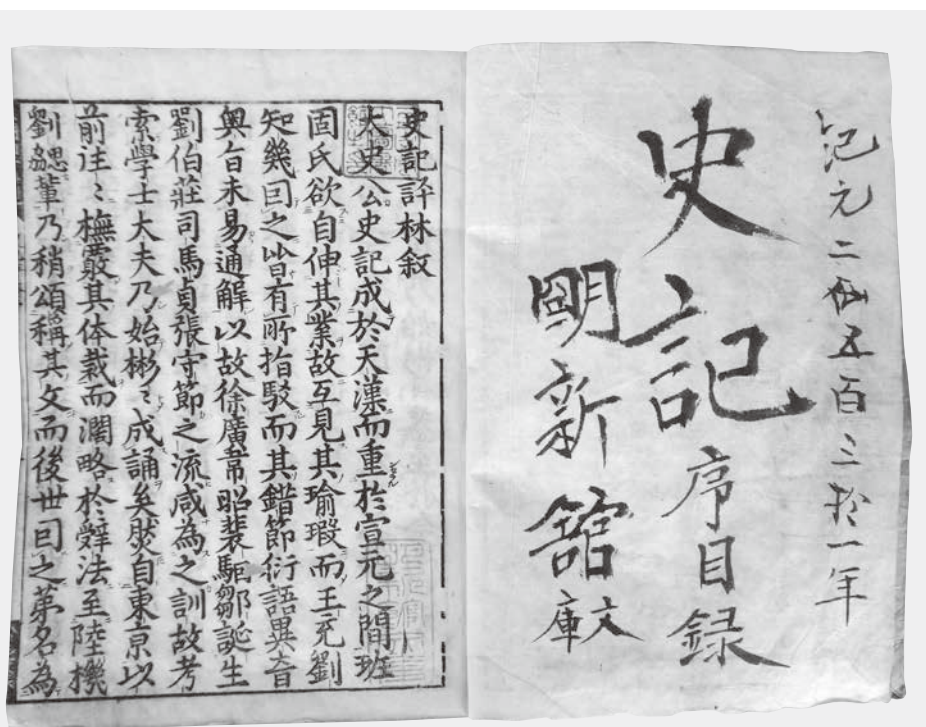 紀元二仟五百三拾一年
史記序目録
朙新舘文庫
史記評林叙
太史公史記成於天漢而重於宣元之間班
固氏欲自伸其業故互見其瑜瑕而王充劉
知幾囙之皆有所指駁而其錯節衍語異音
奧旨未易通解以故徐廣韋昭裴駰鄒誕生
劉伯莊司馬貞張守節之流咸為之訓故考
索學士大夫乃始彬〻成誦矣然自東京以
前注〻橅覈其体裁而濶略於辭法至陸機
劉勰輩乃稍頌稱其文而後世囙之苐名為